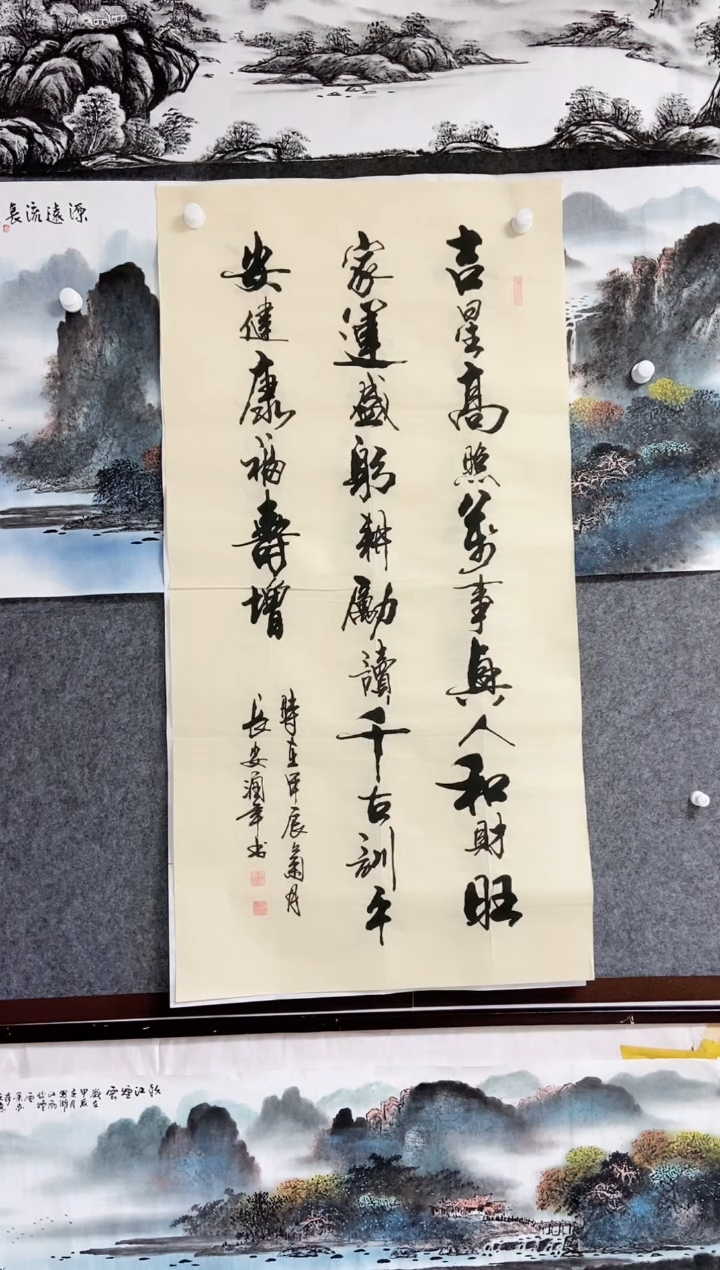 源遠流長
吉星高照萬事興人和財旺
家運盛躬耕勵讀千古訓平
安健康福壽增
時在甲辰蘭月
長安潤年书
秋江煙雲